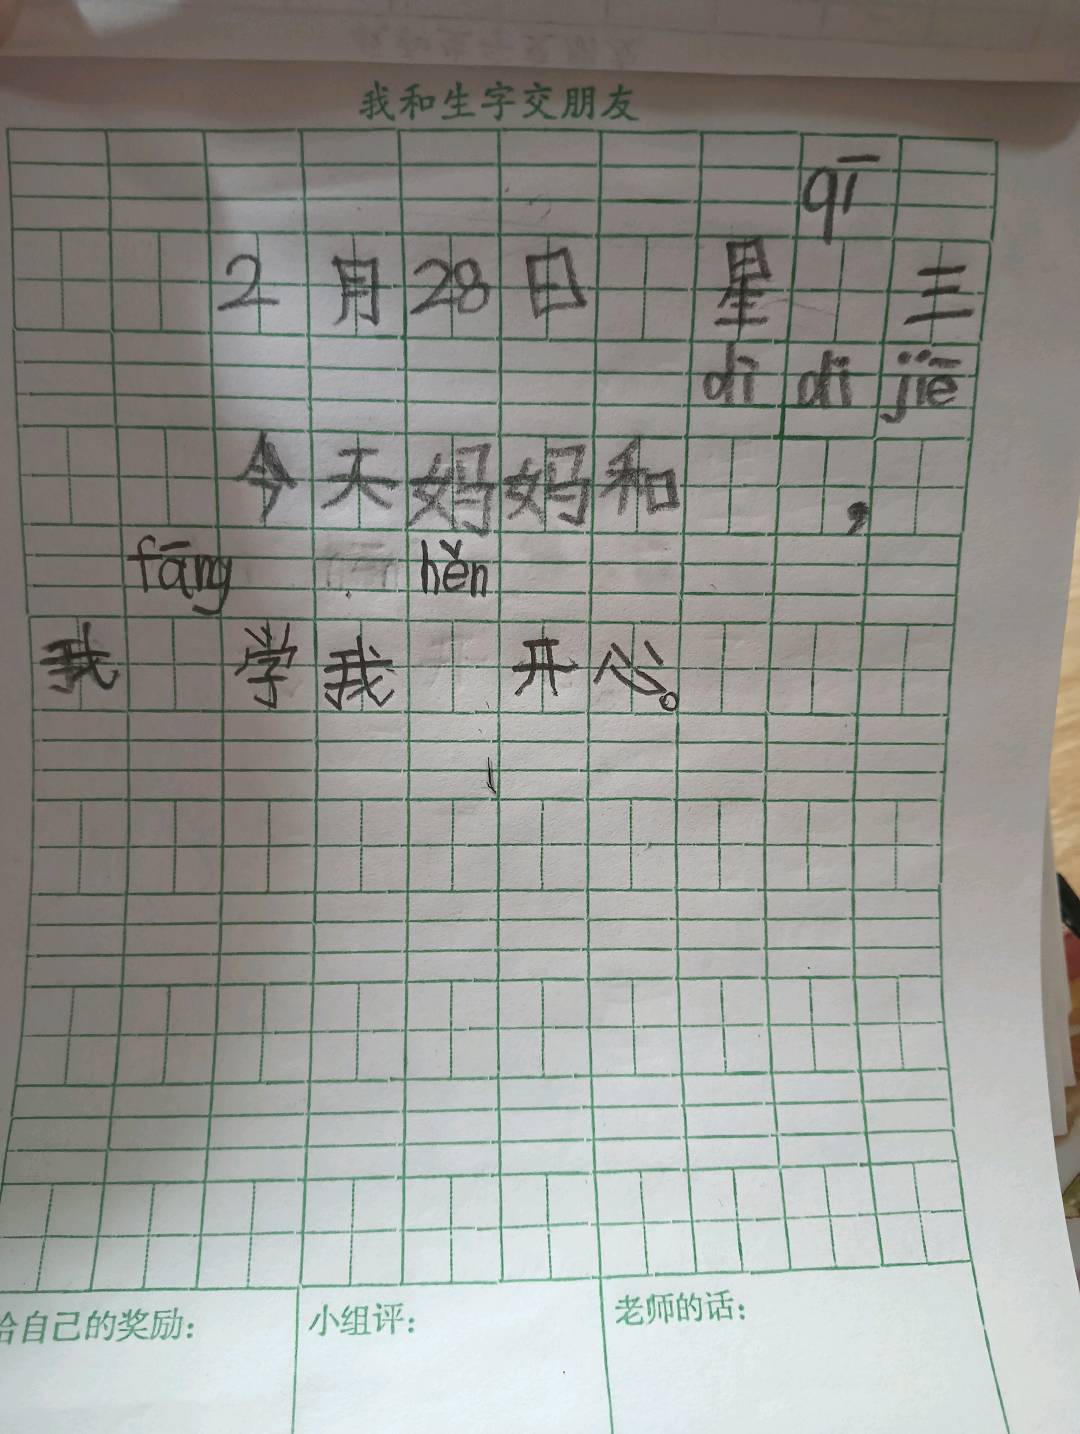 我和生字交朋友
qī
2月28日 星 三
dì di jiē
今天妈妈和 ，
fāng hěn
我 学我 开心。
给自己的奖励：
小组评：
老师的话：